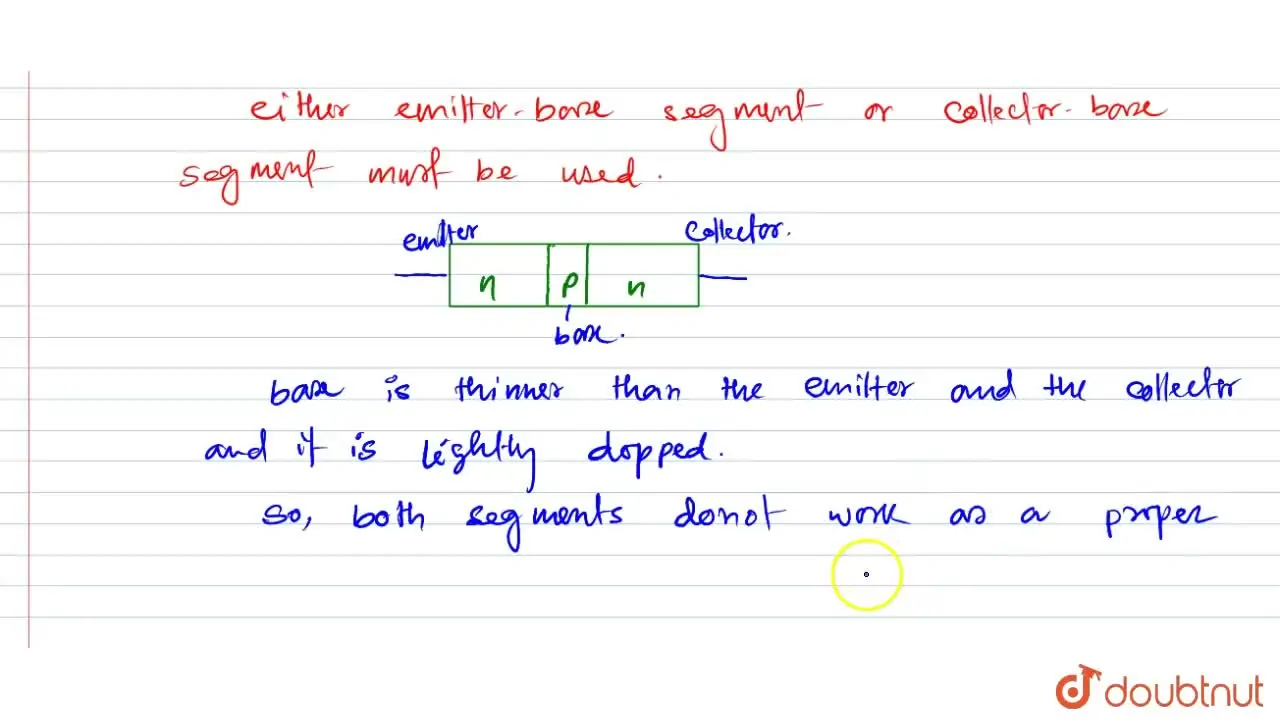 either emitter-base segment or collector-base
segment must be used.
emitter
collector.
n
p
n
base.
base is thinner than the emitter and the collector
and it is lightly dopped.
so, both segments donot work as a proper
doubtnut